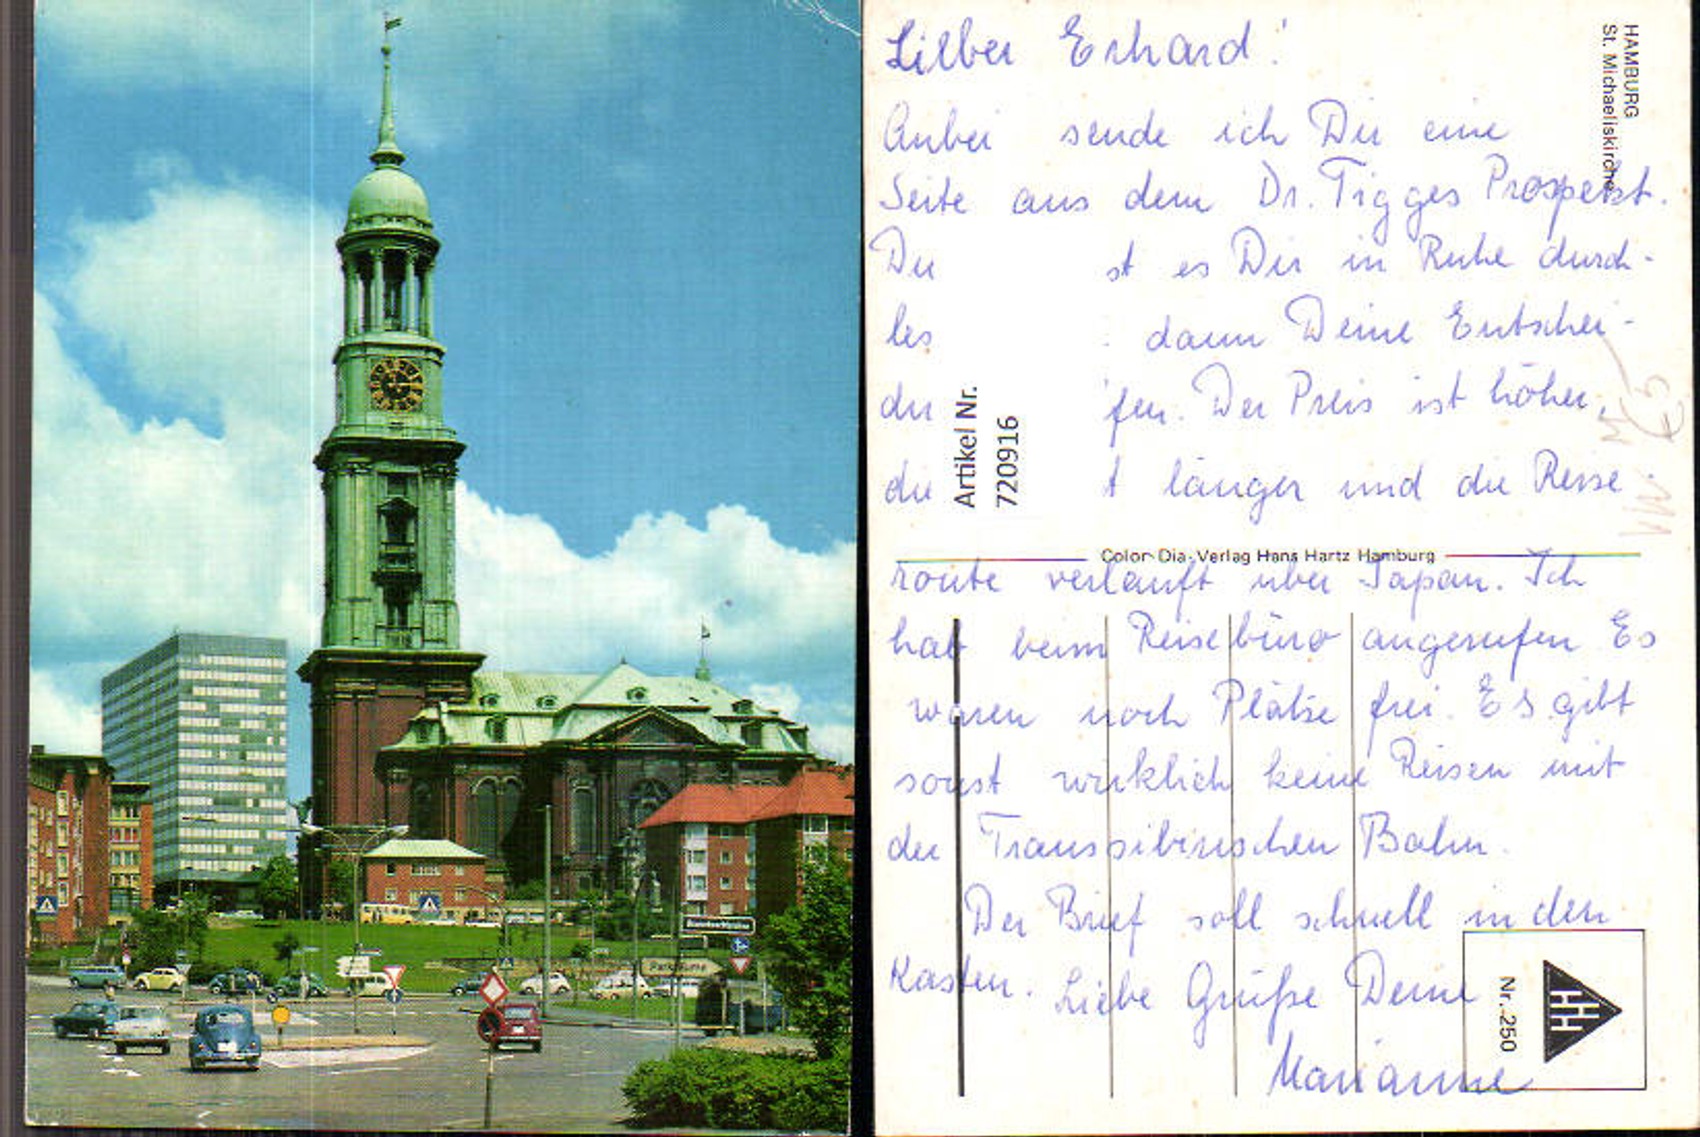 Lieber Erhard!
Anbei sende ich Dir eine
Seite aus dem Dr. Tigges Prospekt.
Du st es Dir in Ruhe durch-
les dann Deine Entschei-
du fen. Der Preis ist höher,
die t länger und die Reise
route verläuft über Japan. Ich
hab beim Reisebüro angerufen Es
waren noch Plätze frei. Es gibt
sonst wirklich keine Reisen mit
der Transsibirischen Bahn.
Der Brief soll schnell in den
Kasten. Liebe Grüße Deine
Marianne
HAMBURG
St. Michaeliskirche
Artikel Nr.
720916
Color-Dia-Verlag Hans Hartz Hamburg
HHH
Nr. 250